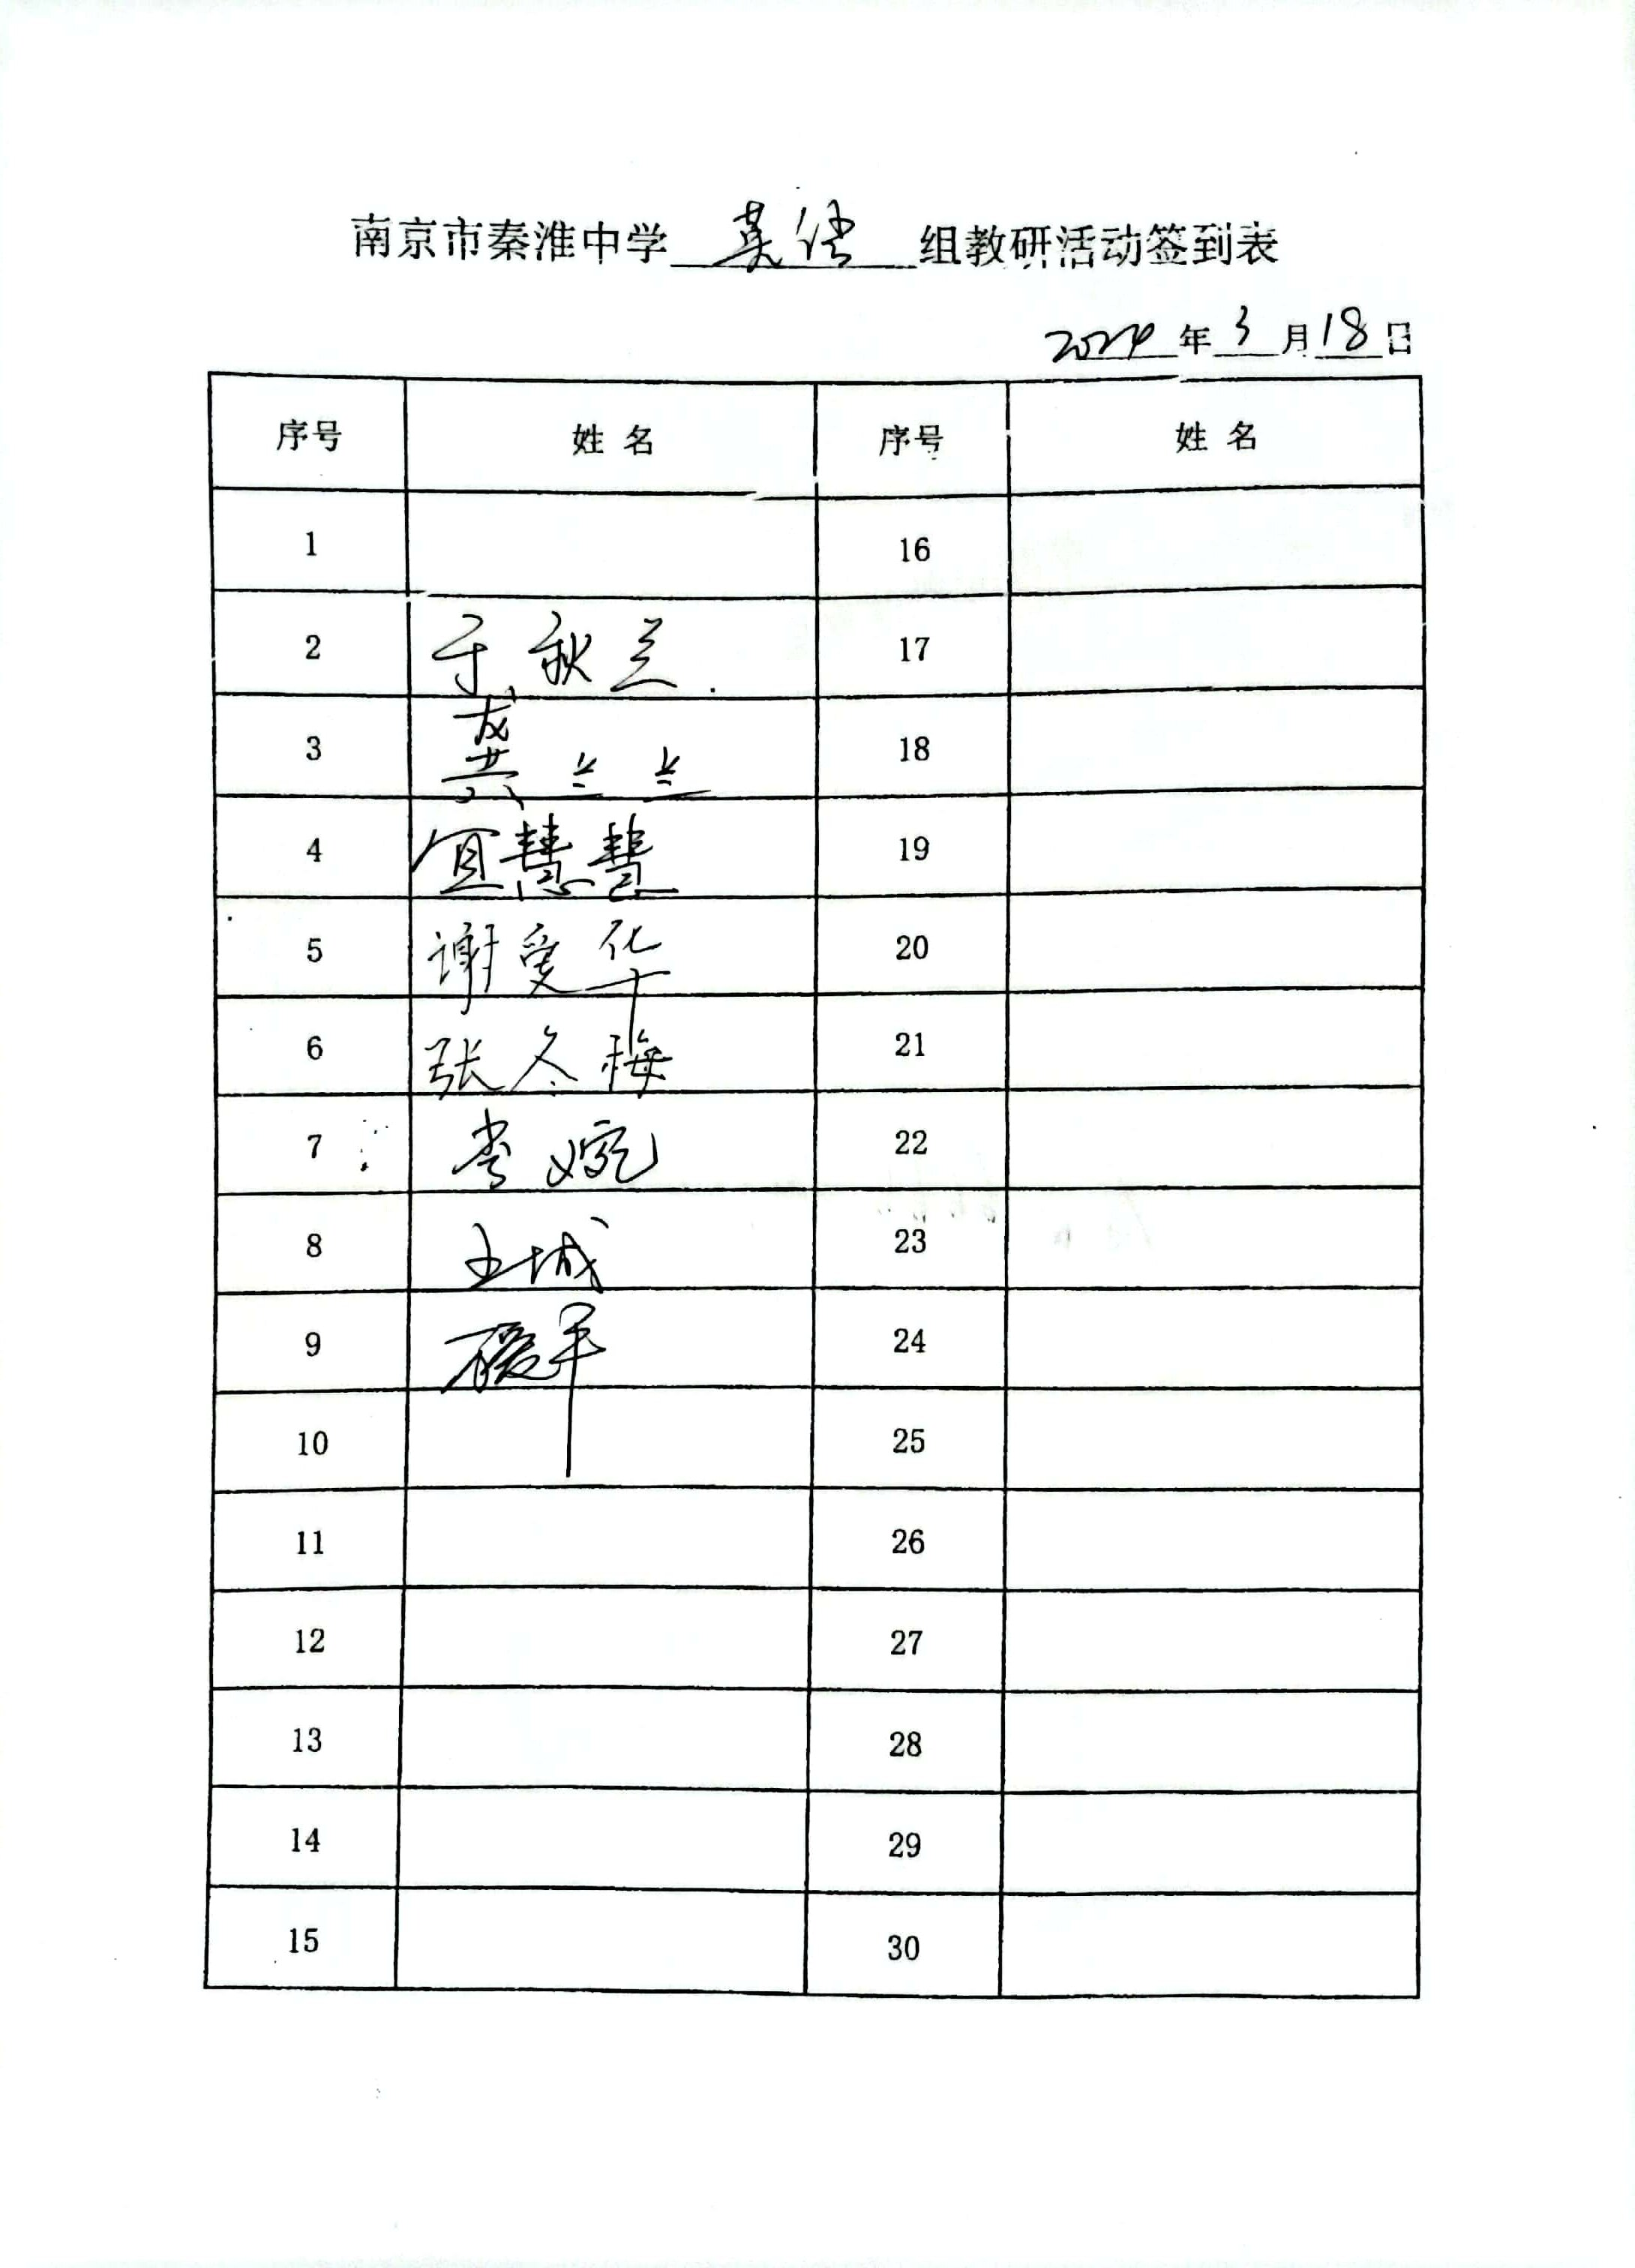 南京市秦淮中学 英语 组教研活动签到表
2024 年 3 月 18 日
序号 姓 名 序号 姓 名
1 16
2 于秋兰 17
3 龚兰兰 18
4 宜慧慧 19
5 谢爱华 20
6 张冬梅 21
7 李婉 22
8 王城 23
9 24
10 25
11 26
12 27
13 28
14 29
15 30